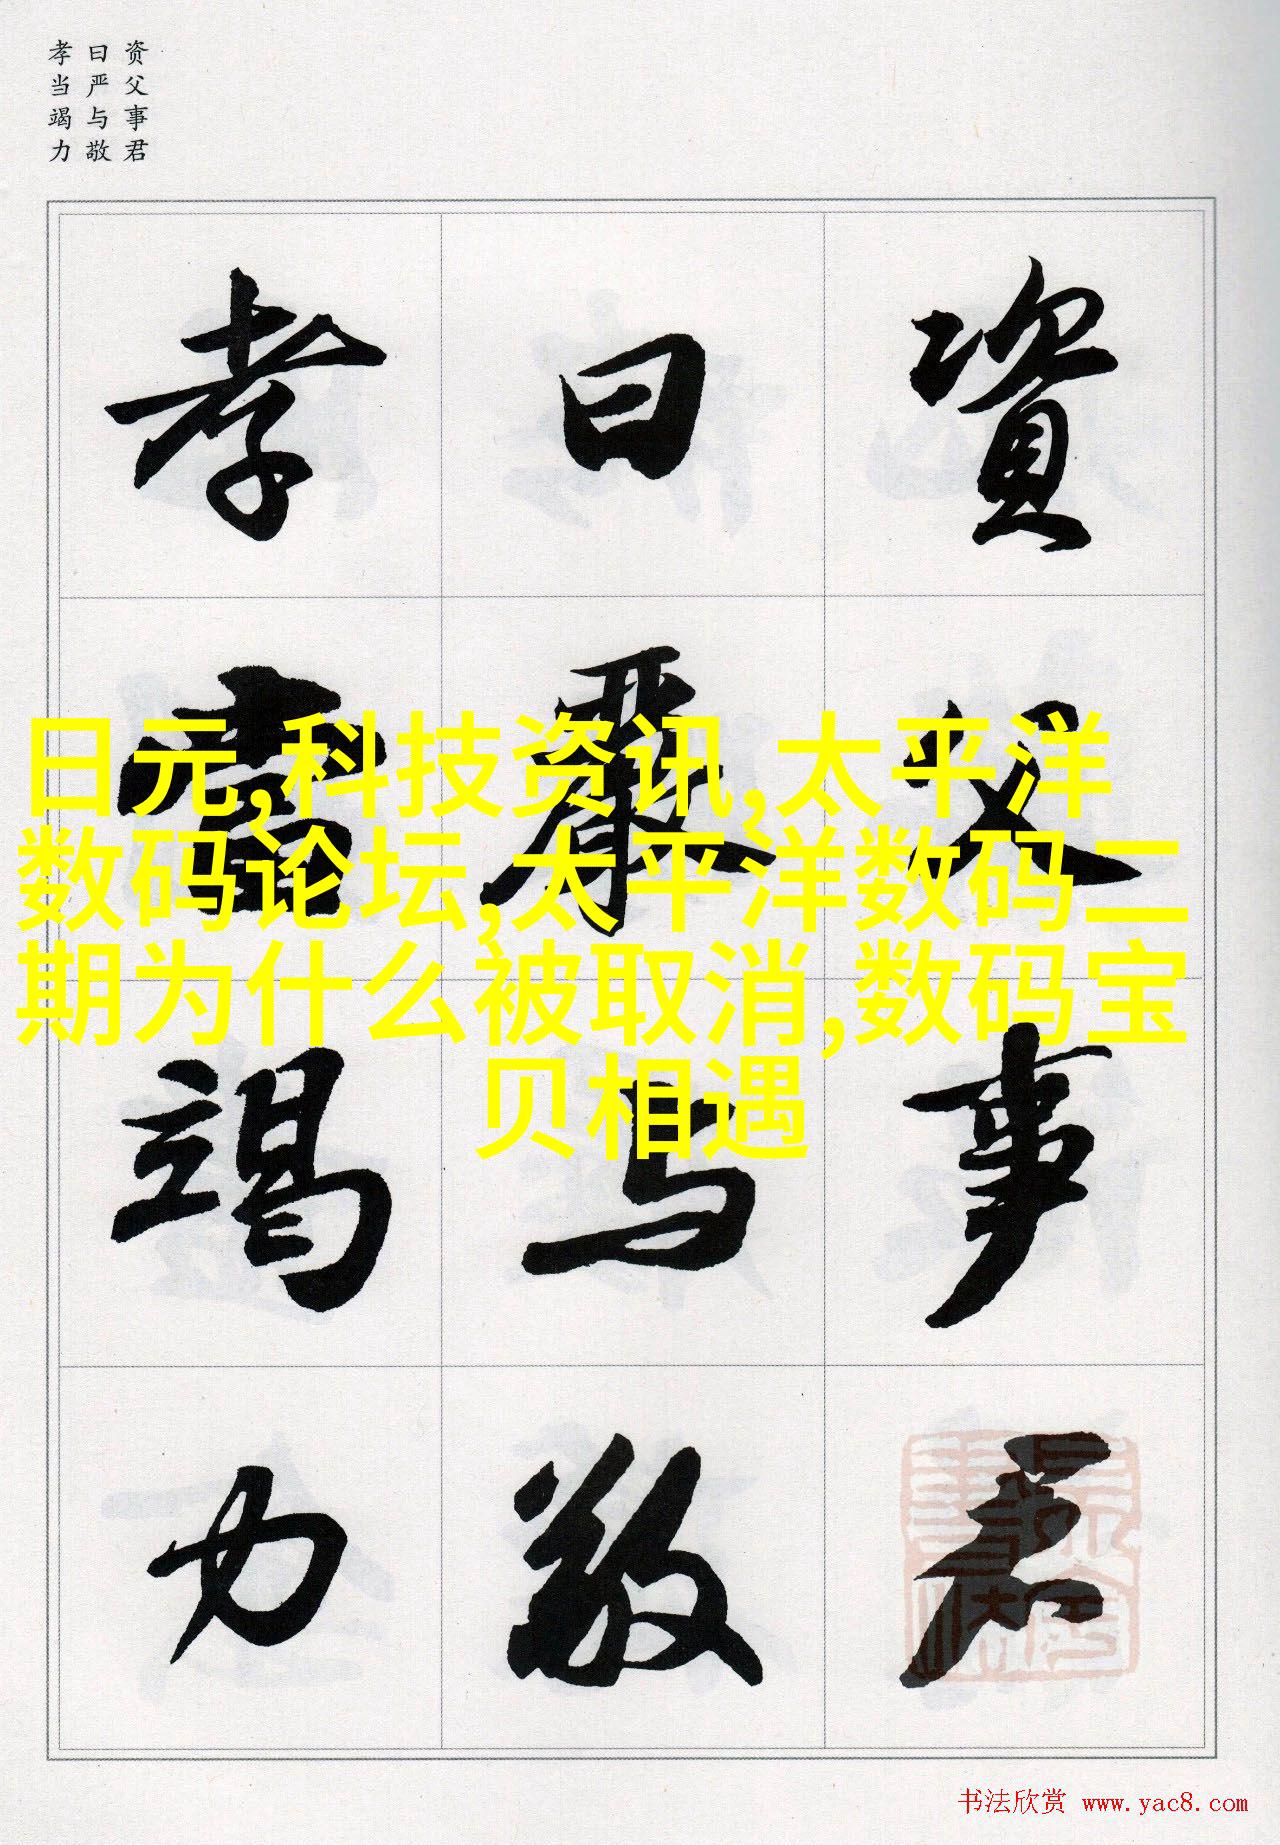 资父事君
曰严与敬
孝当竭力
資父事君
曰嚴與敬
孝當竭力
日元,科技资讯,太平洋
数码论坛,太平洋数码二
期为什么被取消,数码宝
贝相遇
书法欣赏 www.yac8.com